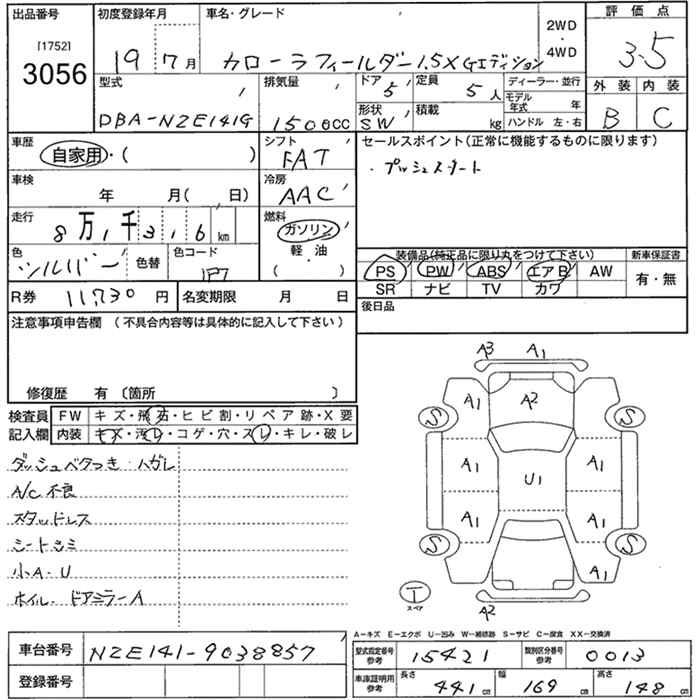 出品番号
[1752]
3056
初度登録年月
19 7月
車名・グレード
カローラフィールダー 1.5X Gエディション
2WD
・
4WD
評価点
3.5
型式
DBA-NZE141G
排気量
1500cc
ドア
5
定員
5人
形状
SW
積載
kg
ディーラー・並行
モデル年式 年
ハンドル 左・右
外装 内装
B C
車歴
自家用・( )
シフト
FAT
セールスポイント(正常に機能するものに限ります)
・プッシュスタート
車検
年 月( 日)
冷房
AAC
走行
8万1千316km
燃料
ガソリン
軽・油
( )
色
シルバー
色替
色コード
1F7
装備品(純正品に限り丸をつけて下さい)
新車保証書
PS PW ABS エアB AW
有・無
SR ナビ TV カワ
R券 11730円
名変期限 月 日
後日品
注意事項申告欄(不具合内容等は具体的に記入して下さい)
修復歴 有〔箇所 〕
検査員
記入欄
FW キズ・飛石・ヒビ割・リペア跡・X要
内装 キズ・汚レ・コゲ・穴・スレ・キレ・破レ
ダッシュベタつき・ハガレ
A/C不良
スタッドレス
シートシミ
小A・U
ホイル・ドアミラーA
A3 A1
A1 A2
S S
A1 U1 A1
A1 A1
S S
A1
T
スペア
A2
A-キズ E-エクボ U-凹み W-補修跡 S-サビ C-腐食 XX-交換済
車台番号
NZE141-9038857
登録番号
型式指定番号
参考
15421
類別区分番号
参考
0013
車庫証明用
参考
長さ
441cm
幅
169cm
高さ
148cm